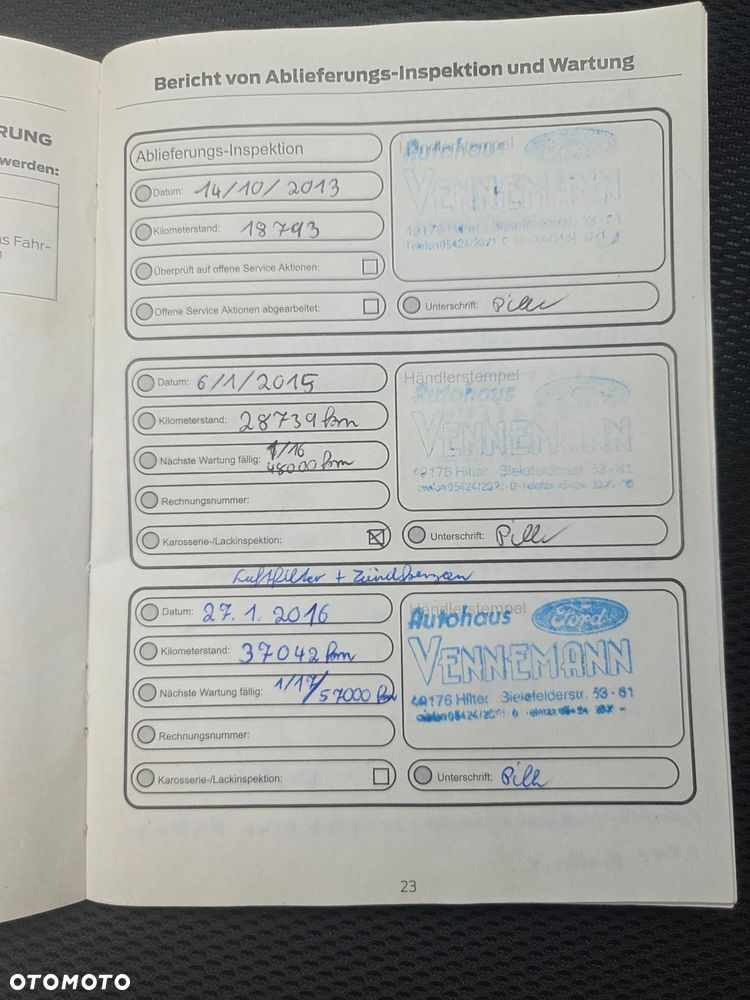 RUNG
werden:
as Fahr-
Bericht von Ablieferungs-Inspektion und Wartung
Ablieferungs-Inspektion
Datum: 14/10/2013
Kilometerstand: 18793
Überprüft auf offene Service Aktionen:
Offene Service Aktionen abgearbeitet:
Händlerstempel
Autohaus Ford
VENNEMANN
49176 Hilter Bielefelderstr. 53-61
Unterschrift: Pille
Datum: 6/1/2015
Kilometerstand: 28739 km
Nächste Wartung fällig: 1/16
48000 km
Rechnungsnummer:
Karosserie-/Lackinspektion:
Händlerstempel
Autohaus
VENNEMANN
49176 Hilter Bielefelderstr. 53-61
Unterschrift: Pille
Luftfilter + Zündkerzen
Datum: 27.1.2016
Kilometerstand: 37042 km
Nächste Wartung fällig: 1/17/57000 km
Rechnungsnummer:
Karosserie-/Lackinspektion:
Händlerstempel
Autohaus Ford
VENNEMANN
49176 Hilter Bielefelderstr. 53-61
Unterschrift: Pille
23
OTOMOTO